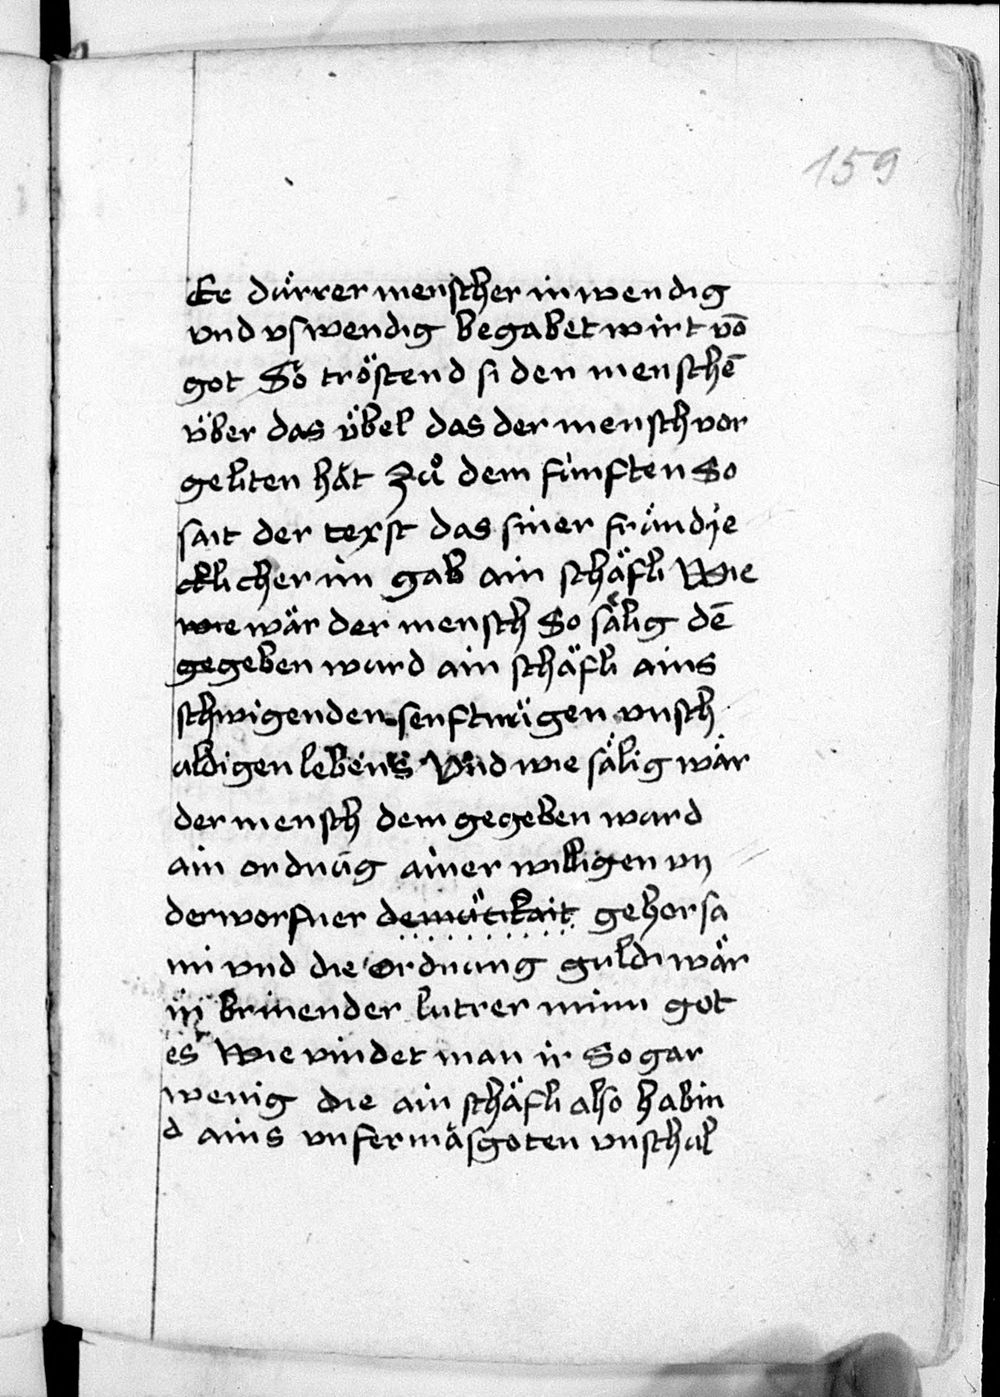 159
Er dürrer menscher inwendig
vnd vswendig begabet wirt vō
got So tröstend si den menschē
über das übel das der mensch vor
geliten hät Zuͦ dem fünften So
sait der texst das siner fründ je
cklicher im gab ain schäfli Wie
wie wär der mensch So sälig dē
gegeben wurd ain schäfli ains
schwigenden senftmügen vnsch
uldigen lebens Vnd wie sälig wär
der mensch dem gegeben ward
ain ordnūg ainer willigen vn
derworfner demütikait gehorsa
mi vnd die ordnung guldi wär
in brinender lutrer minn got
es Wie vindet man ir So gar
wenig die ain schäfli also habin
d ains vnfermäsgoten vnschul